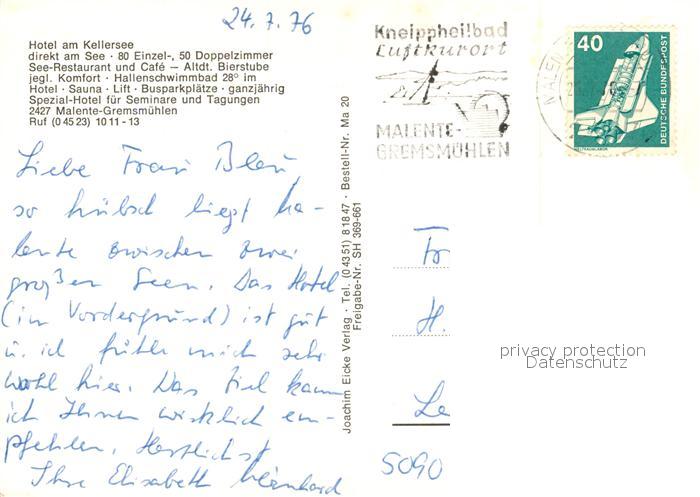 24.7.76
Hotel am Kellersee
direkt am See · 80 Einzel-, 50 Doppelzimmer
See-Restaurant und Café – Altdt. Bierstube
jegl. Komfort · Hallenschwimmbad 28° im
Hotel · Sauna · Lift · Busparkplätze · ganzjährig
Spezial-Hotel für Seminare und Tagungen
2427 Malente-Gremsmühlen
Ruf (0 45 23) 10 11 - 13
Liebe Frau Blau,
so hübsch liegt Ma-
lente zwischen zwei
großen Seen. Das Hotel
(im Vordergrund) ist gut
u. ich fühle mich sehr
wohl hier. Das Ziel kann
ich Ihnen wirklich em-
pfehlen. Herzlichst
Ihre Elisabeth
Joachim Eicke Verlag · Tel. (0 43 51) 8 18 47 · Bestell-Nr. Ma 20
Freigabe-Nr. SH 369-661
Kneippheilbad
Luftkurort
MALENTE-
GREMSMÜHLEN
40
DEUTSCHE BUNDESPOST
WELTRAUMLABOR
Fr
H.
Le
5090
privacy protection
Datenschutz